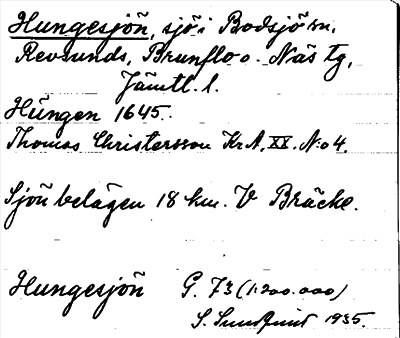 Hungesjön, sjö i Bodsjö sn.
Revsunds, Brunflo o. Näs tg,
Jämtl. l.
Hüngen 1645.
Thomas Christersson Kr.A. XX. No 4.
Sjön belägen 18 km. V Bräcke.
Hungesjön G. 73 (1:200.000)
S. Sundquist 1935.